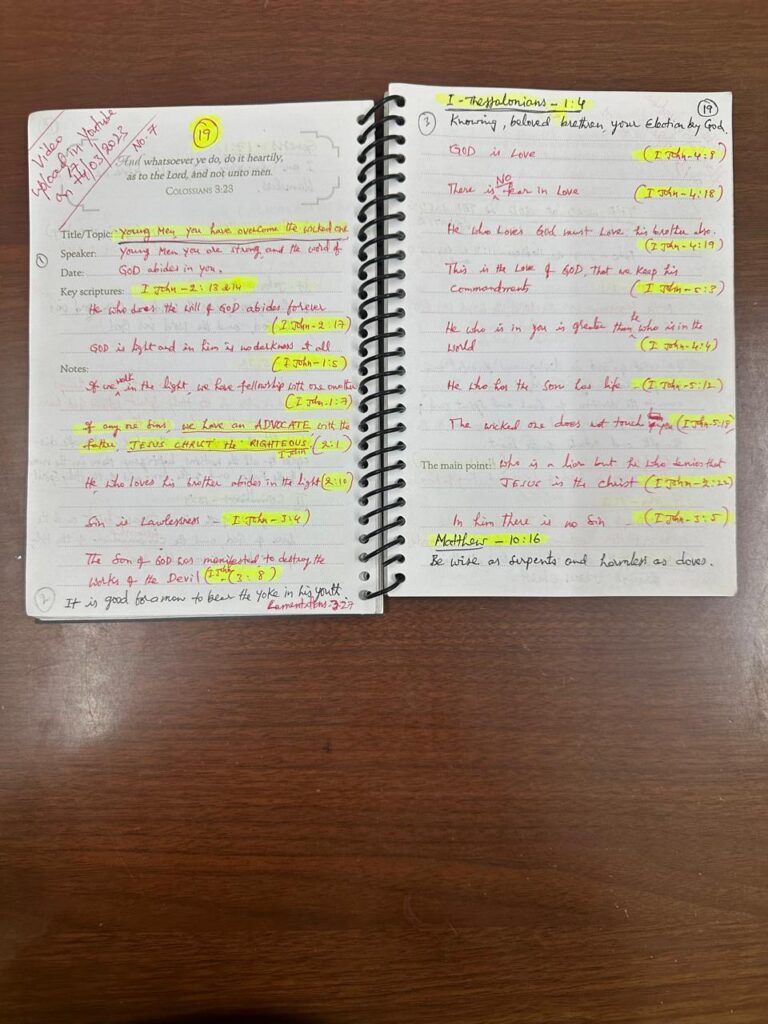 Video
upload in Youtube
on 27/03/2023
No-7
19
And whatsoever ye do, do it heartily,
as to the Lord, and not unto men.
COLOSSIANS 3:23
Title/Topic: Young Men, you have overcome the wicked one
1
Speaker: Young Men you are strong and the word of
Date: GOD abides in you.
Key scriptures: I John-2:13&14
He who does the will of GOD abides forever
(I John-2:17)
GOD is light and in him is no darkness at all
(I John-1:5)
Notes:
If we walk in the light, we have fellowship with one another
(I John-1:7)
If any one Sins, we have an ADVOCATE with the
father, JESUS CHRIST the RIGHTEOUS. I John (2:1)
He who loves his brother abides in the light (2:10)
Sin is Lawlessness - I John-3:4
The Son of GOD was manifested to destroy the
works of the Devil I John-(3:8)
2
It is good for a man to bear the yoke in his youth.
Lamentations-3:27
I-Thessalonians-1:4
19
3
Knowing, beloved brethren, your Election by God.
GOD is Love (I John-4:8)
There is NO fear in Love (I John-4:18)
He who Loves God must Love his brother also.
(I John-4:19)
This is the Love of GOD, That we keep his
Commandments (I John-5:3)
He who is in you is greater than he who is in the
world (I John-4:4)
He who has the Son has life - (I John-5:12)
The wicked one does not touch (I John-5:18)
The main point: Who is a liar but he who denies that
JESUS is the Christ (I John-2:22)
In him there is no Sin - (I John-3:5)
Matthew-10:16
Be wise as serpents and harmless as doves.